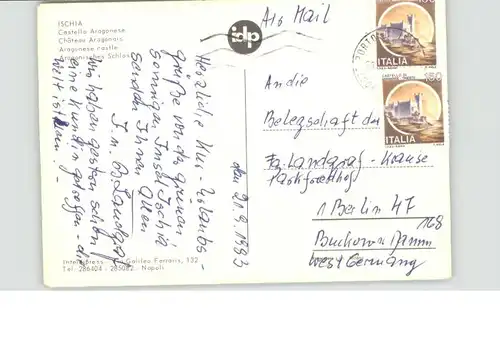 ISCHIA
Castello Aragonese
Château Aragonais
Aragonese castle
Aragonisches Schloss
idp
Air Mail
150
ITALIA
150
ITALIA
den 21.9.1983
Herzliche Kur-Urlaubs-
grüße von der grünen
sonnigen Insel Ischia
senden Ihnen Allen
Landgraf
Wir haben gestern schon
eine Kundin getroffen - die
Welt ist klein!
An die
Belegschaft der
Fa. Landgraf - Krause
Parkfriedhof
1 Berlin 47
168
West Germany
Galileo Ferraris, 132
Tel. 286404 - 285082 - Napoli